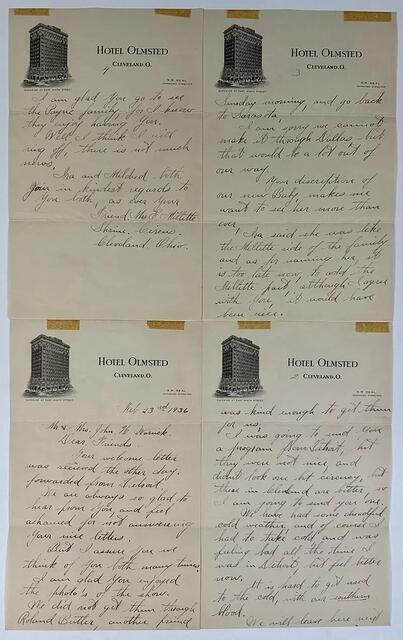 HOTEL OLMSTED
CLEVELAND, O.
SUPERIOR AT EAST NINTH STREET
Feb 23rd 1936
Mr & Mrs. John H. Warnick.
Dear Friends
Your welcome letter
was received the other day.
forwarded from Detroit.
We are always so glad to
hear from you, and feel
ashamed for not answering
your nice letters.
But I assure you we
think of you both many times.
I am glad you enjoyed
the photo's of the show.
We did not get them through
Roland Butler, another friend
HOTEL OLMSTED
2
CLEVELAND, O.
SUPERIOR AT EAST NINTH STREET
was kind enough to get them
for us.
I was going to send you
a program from Detroit, but
they were not nice, and
didn't look one bit circusy, but
these in Cleveland are better so
I am going to send you one.
We have had some dreadful
cold weather, and of course I
had to take cold and was
feeling bad all the time I
was in Detroit, but feel better
now.
It is hard to get used
to the cold, with our southern
blood.
We will leave here next
HOTEL OLMSTED
3
CLEVELAND, O.
SUPERIOR AT EAST NINTH STREET
Sunday morning, and go back
to Sarasota.
I am sorry we cannot
make it through Dallas - but
that would be a lot out of
our way.
Your discription of
our new Baby, makes me
want to see her more than
ever.
Ira said she was like
the Millette side of the family
and as for naming her, it
is too late now, to add the
Millette part, although I agree
with you, it would have
been nice.
HOTEL OLMSTED
4
CLEVELAND, O.
SUPERIOR AT EAST NINTH STREET
I am glad you go to see
the Payne family, for I know
they enjoy having you.
Well I think I will
ring off, there is not much
news.
Ira and Mildred both
join in kindest regards to
you both, as ever your
Friend Mrs. F. Millette
Shrine Circus.
Cleveland Ohio.